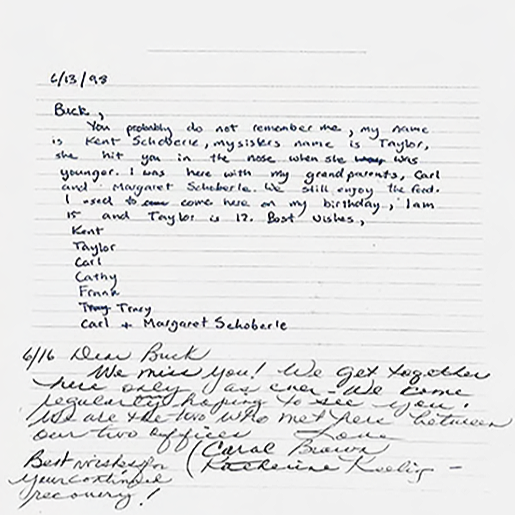 6/13/98
Buck,
You probably do not remember me, my name
is Kent Schoberle, my sisters name is Taylor,
she hit you in the nose when she was
younger. I was here with my grandparents, Carl
and Margaret Schoberle. We still enjoy the food.
I used to come here on my birthday, I am
15 and Taylor is 12. Best wishes,
Kent
Taylor
Carl
Cathy
Frank
Tracy
Carl + Margaret Schoberle
6/16 Dear Buck
We miss you! We get together
here only as ever - We come
regularly hoping to see you.
We are the two who met here between
our two offices Love
Best wishes for (Carol Brown
your continued Katherine
recovery!